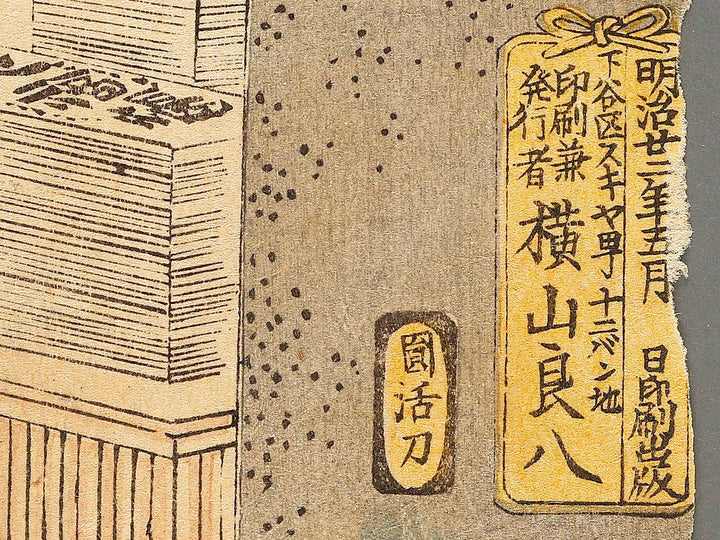 明治廿二年五月　日印刷出版
下谷区スキヤ町十二バン地
印刷兼
発行者
横山良八
圓活刀